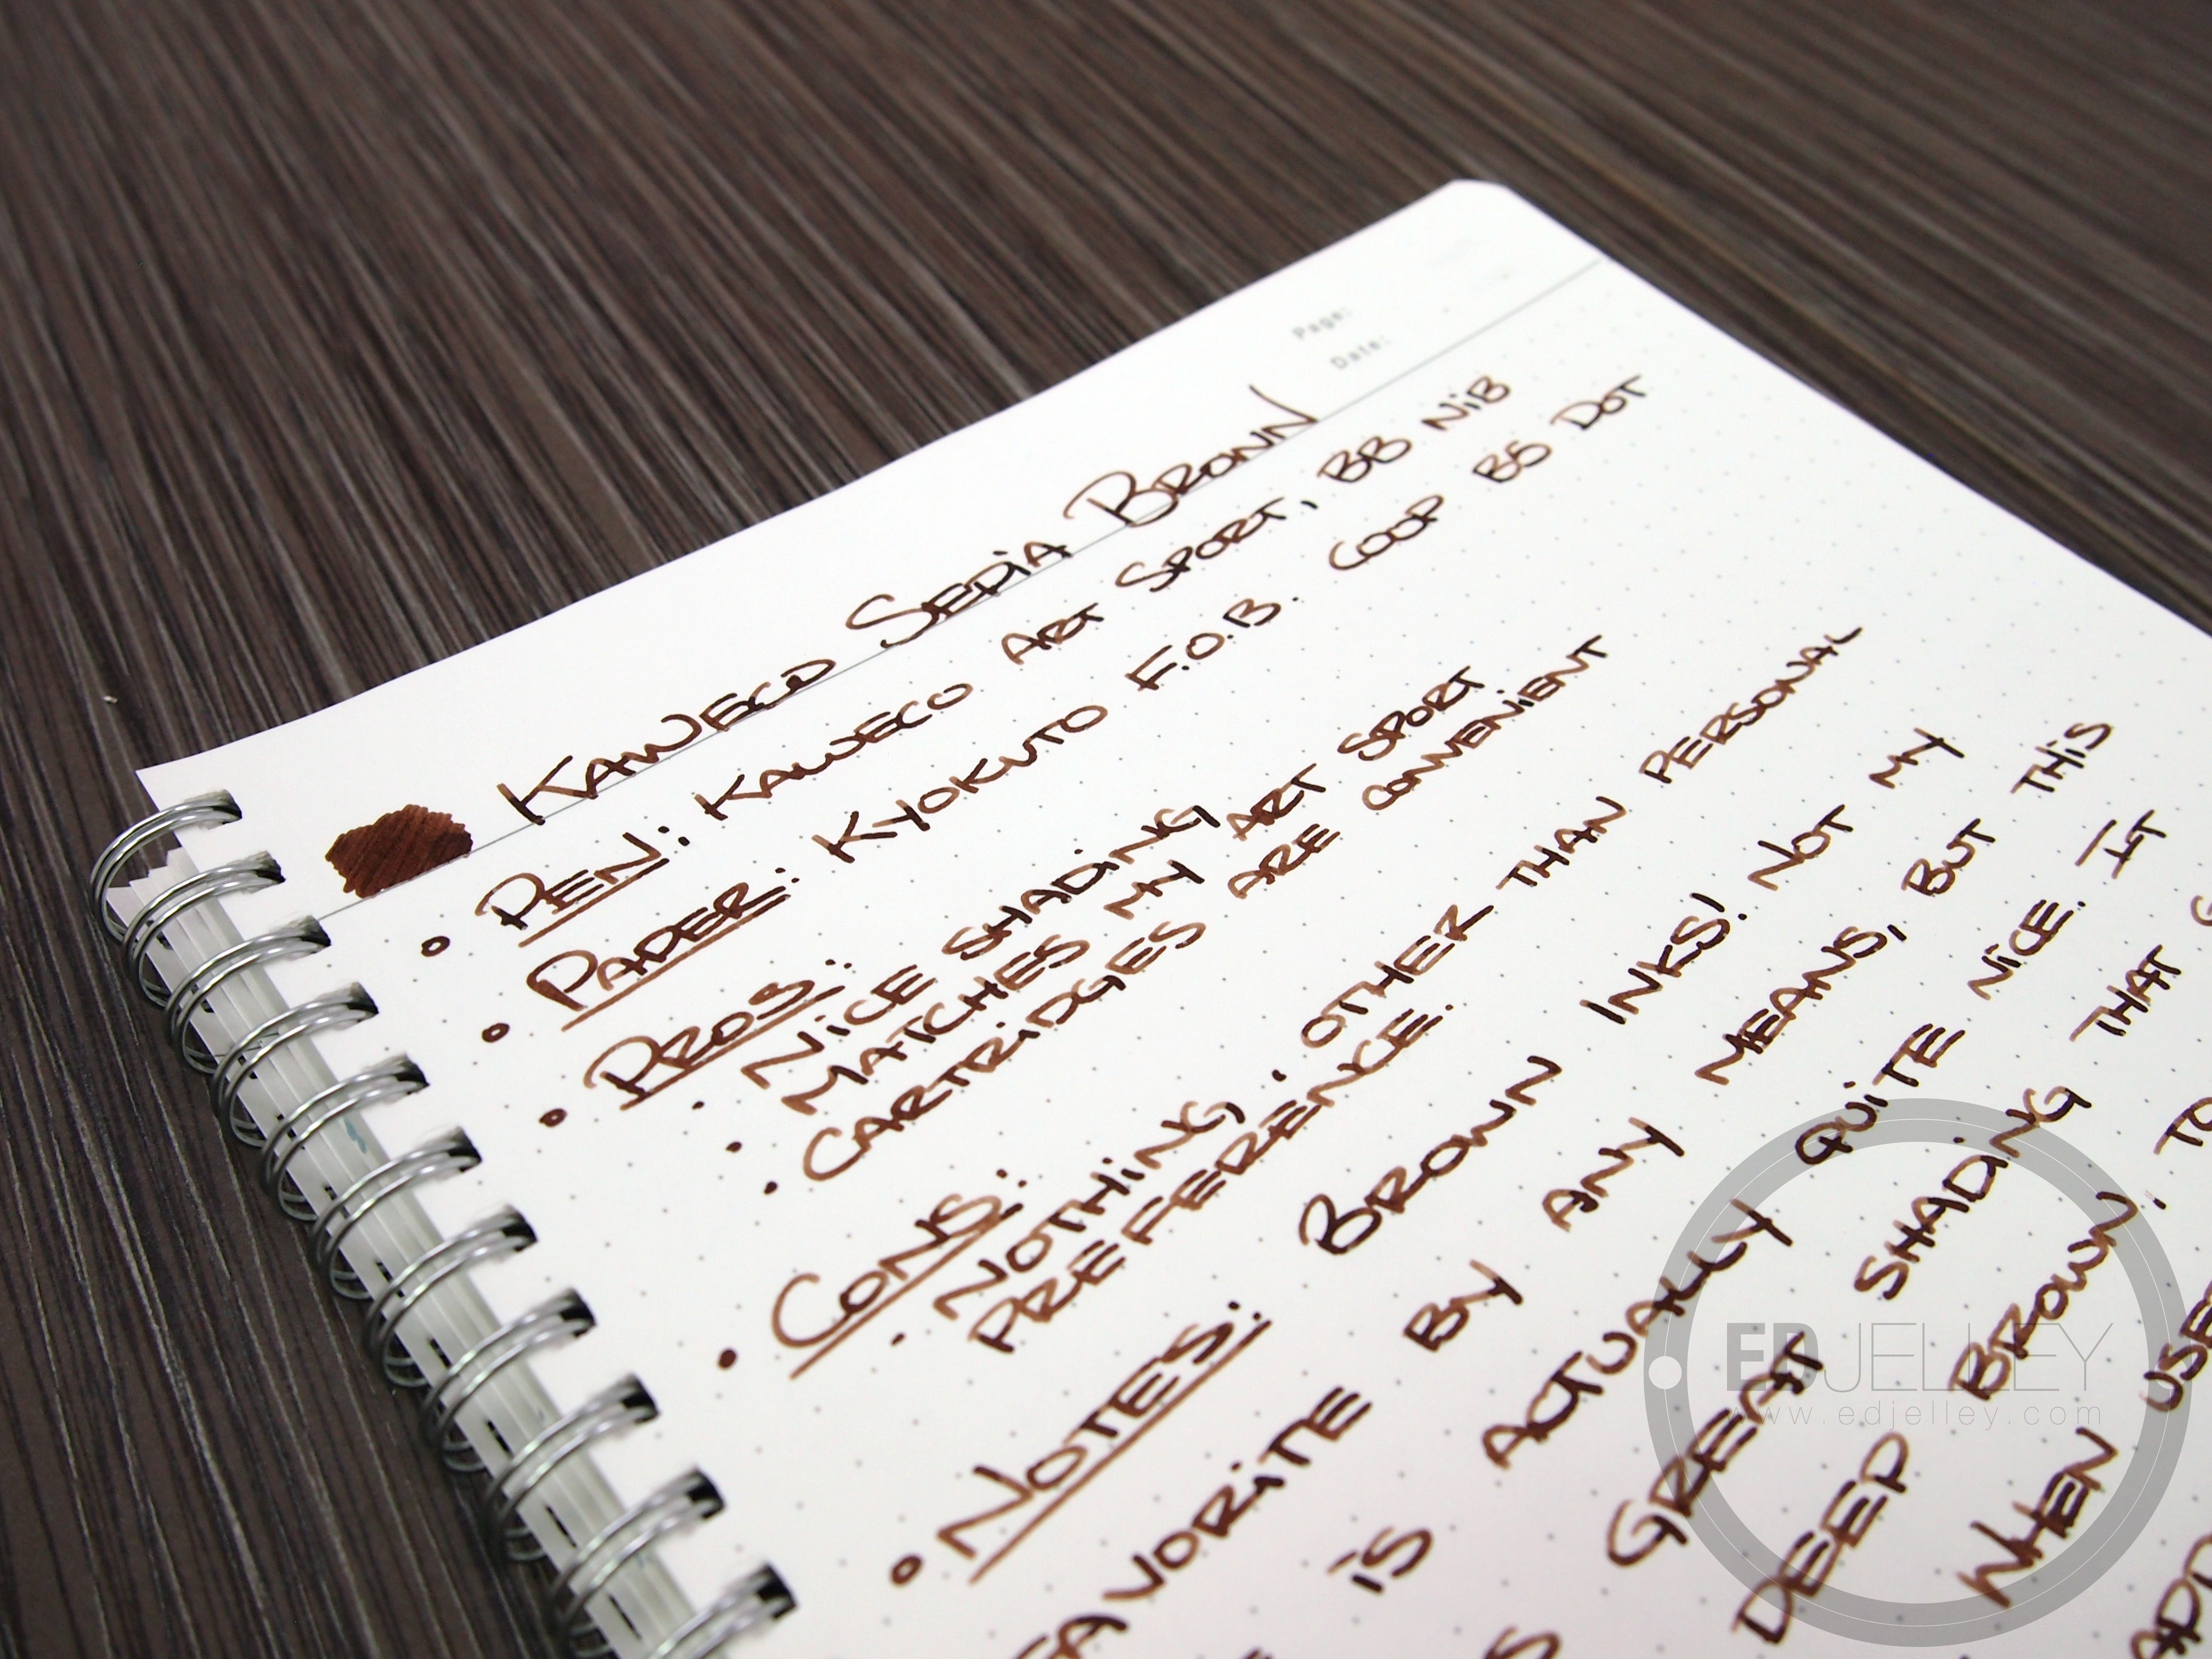 Page:
Date:
KAWECO SEPIA BROWN
• PEN: KAWECO ART SPORT, BB NIB
• PAPER: KYOKUTO F.O.B. COOP B5 DOT
• PROS:
· NICE SHADING
· MATCHES MY ART SPORT
· CARTRIDGES ARE CONVENIENT
• CONS:
· NOTHING, OTHER THAN PERSONAL
PREFERENCE.
• NOTES: BROWN INKS! NOT MY
FAVORITE BY ANY MEANS, BUT THIS
IS ACTUALLY QUITE NICE. IT
GREAT SHADING THAT
DEEP BROWN, TO
WHEN
EDJELLEY
www.edjelley.com